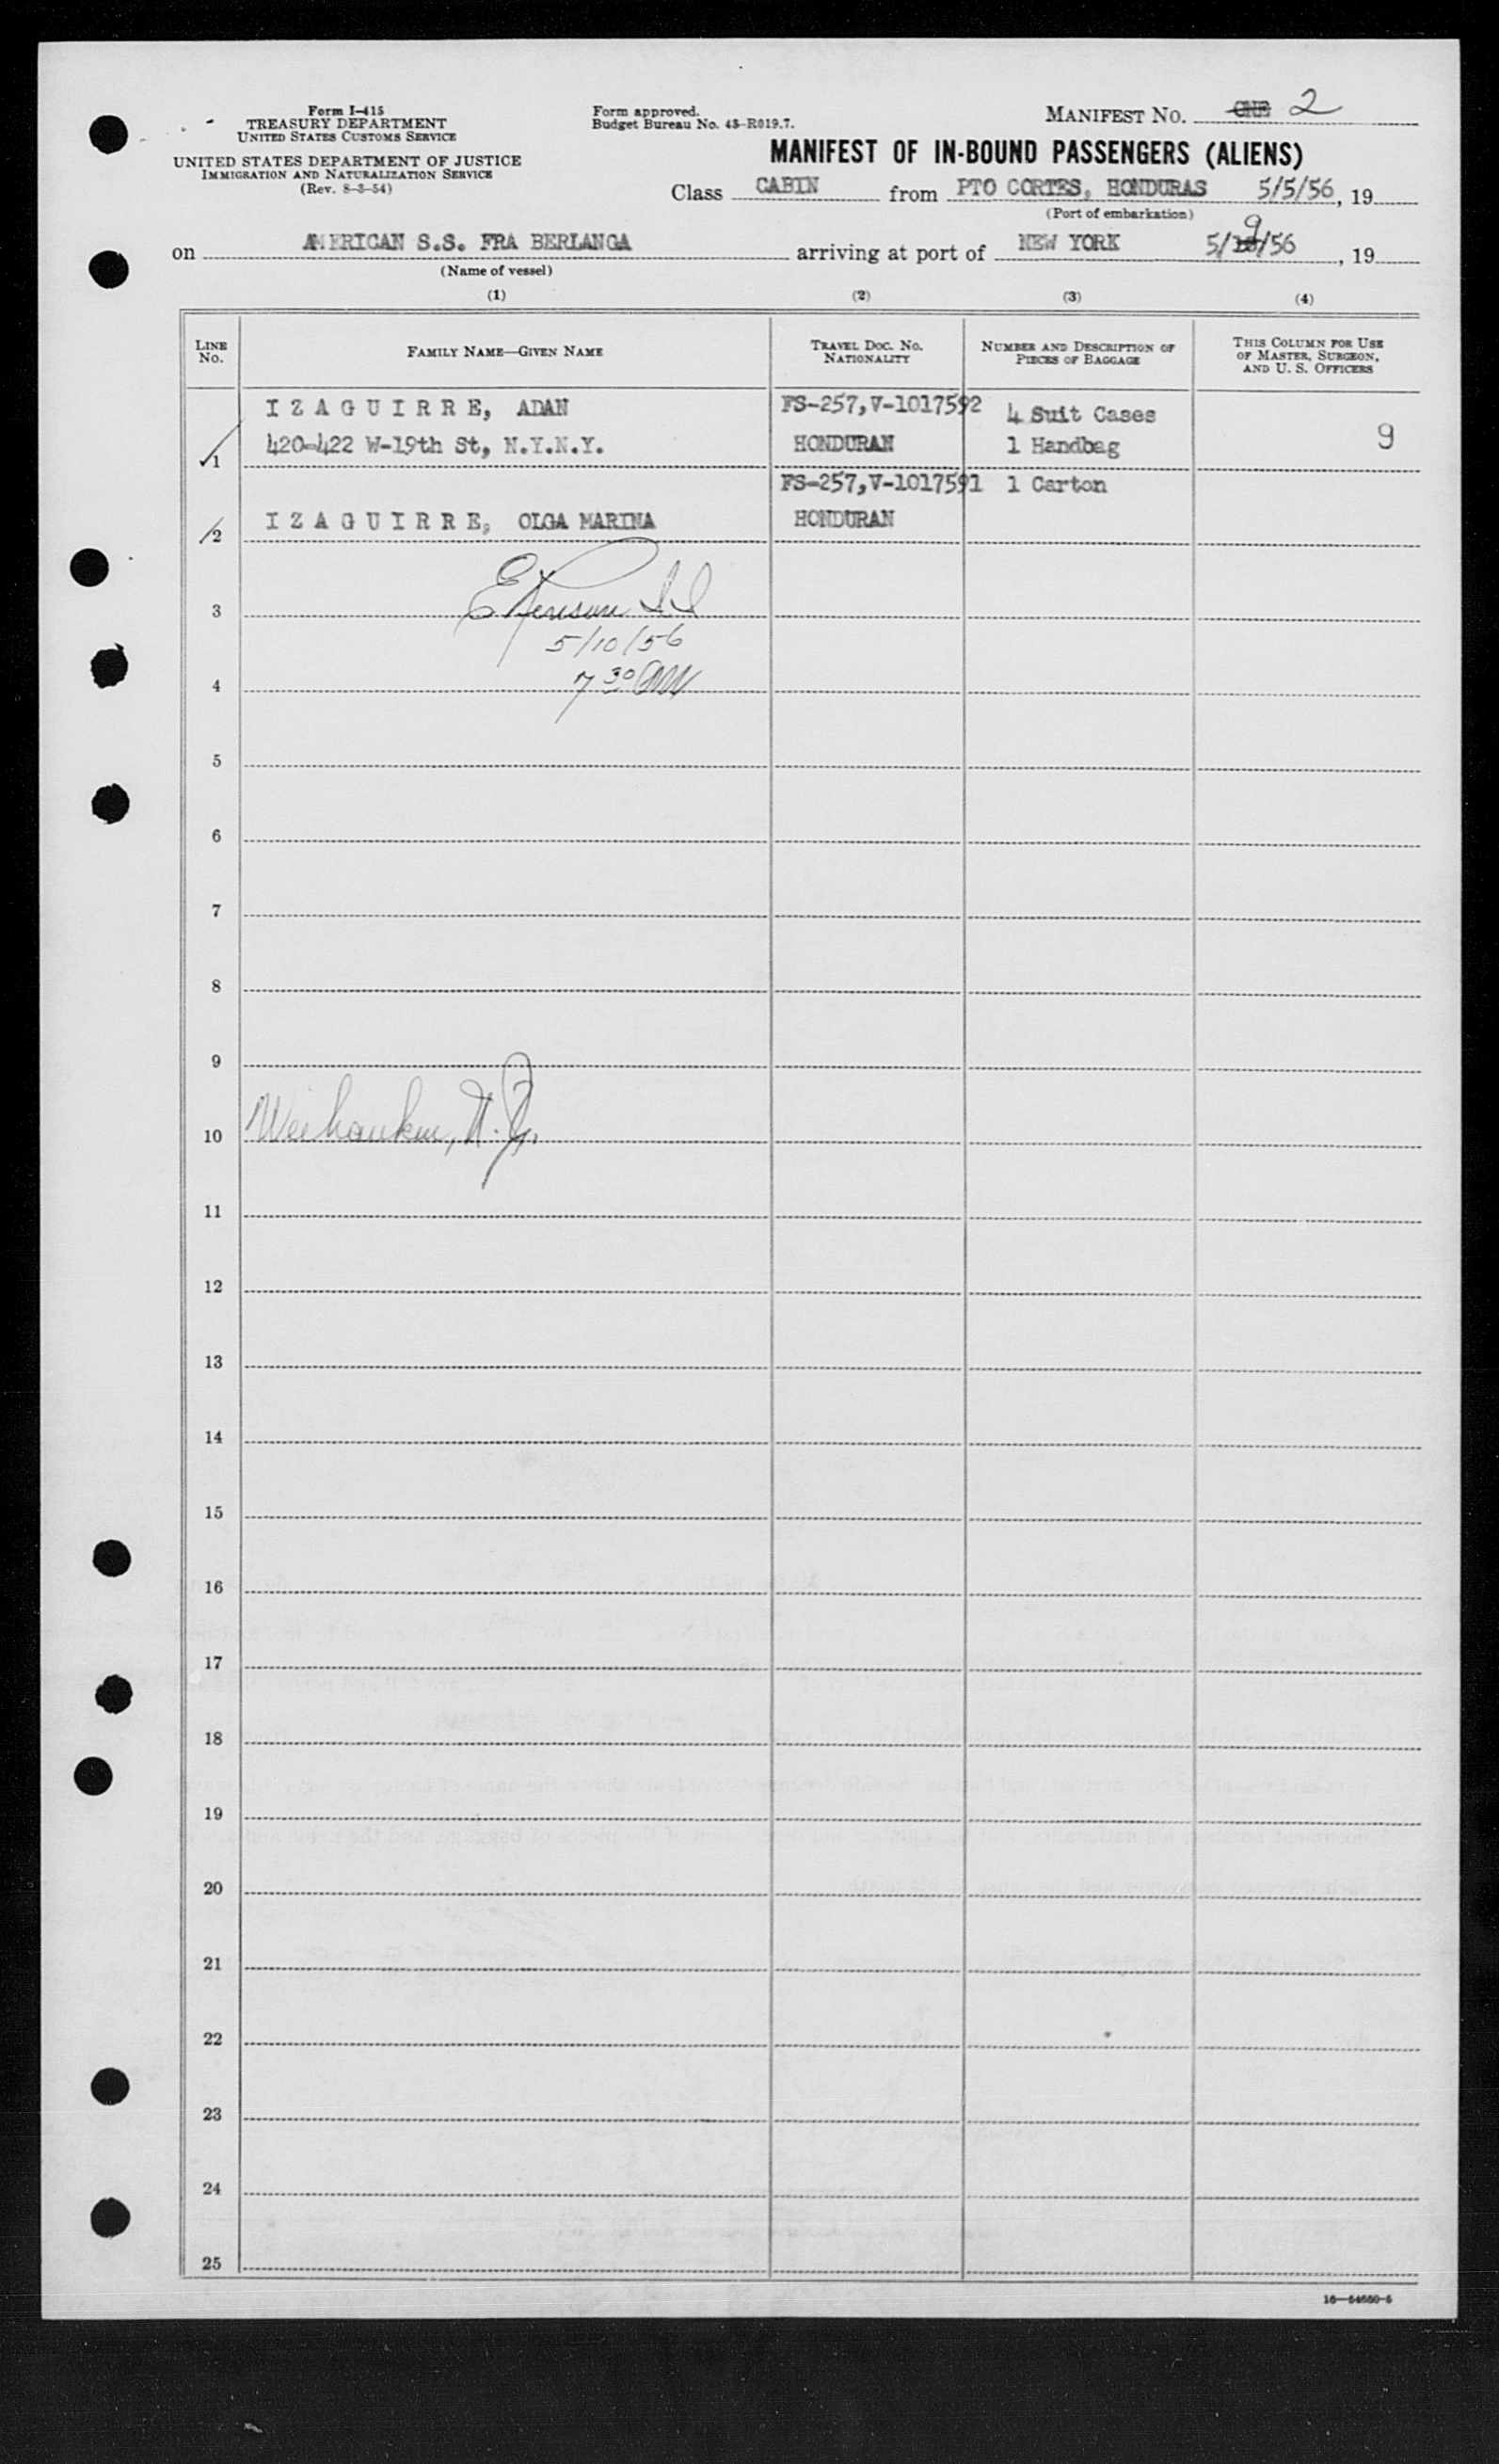 Form I-415
TREASURY DEPARTMENT
UNITED STATES CUSTOMS SERVICE
UNITED STATES DEPARTMENT OF JUSTICE
IMMIGRATION AND NATURALIZATION SERVICE
(Rev. 8-3-54)
Form approved.
Budget Bureau No. 43-R019.7.
MANIFEST NO. ONE 2
MANIFEST OF IN-BOUND PASSENGERS (ALIENS)
Class CABIN from PTO CORTES, HONDURAS 5/5/56, 19
(Port of embarkation)
on AMERICAN S.S. FRA BERLANGA arriving at port of NEW YORK 5/10/56, 19
9
(Name of vessel)
(1) (2) (3) (4)
LINE NO. FAMILY NAME—GIVEN NAME TRAVEL DOC. NO. NATIONALITY NUMBER AND DESCRIPTION OF PIECES OF BAGGAGE THIS COLUMN FOR USE OF MASTER, SURGEON, AND U. S. OFFICERS
I Z A G U I R R E, ADAN FS-257,V-1017592 4 Suit Cases
1 420-422 W-19th St, N.Y.N.Y. HONDURAN 1 Handbag 9
FS-257,V-1017591 1 Carton
2 I Z A G U I R R E, OLGA MARINA HONDURAN
3
5/10/56
4 7 30 AM
5
6
7
8
9
10 Weehauken, N.J.
11
12
13
14
15
16
17
18
19
20
21
22
23
24
25